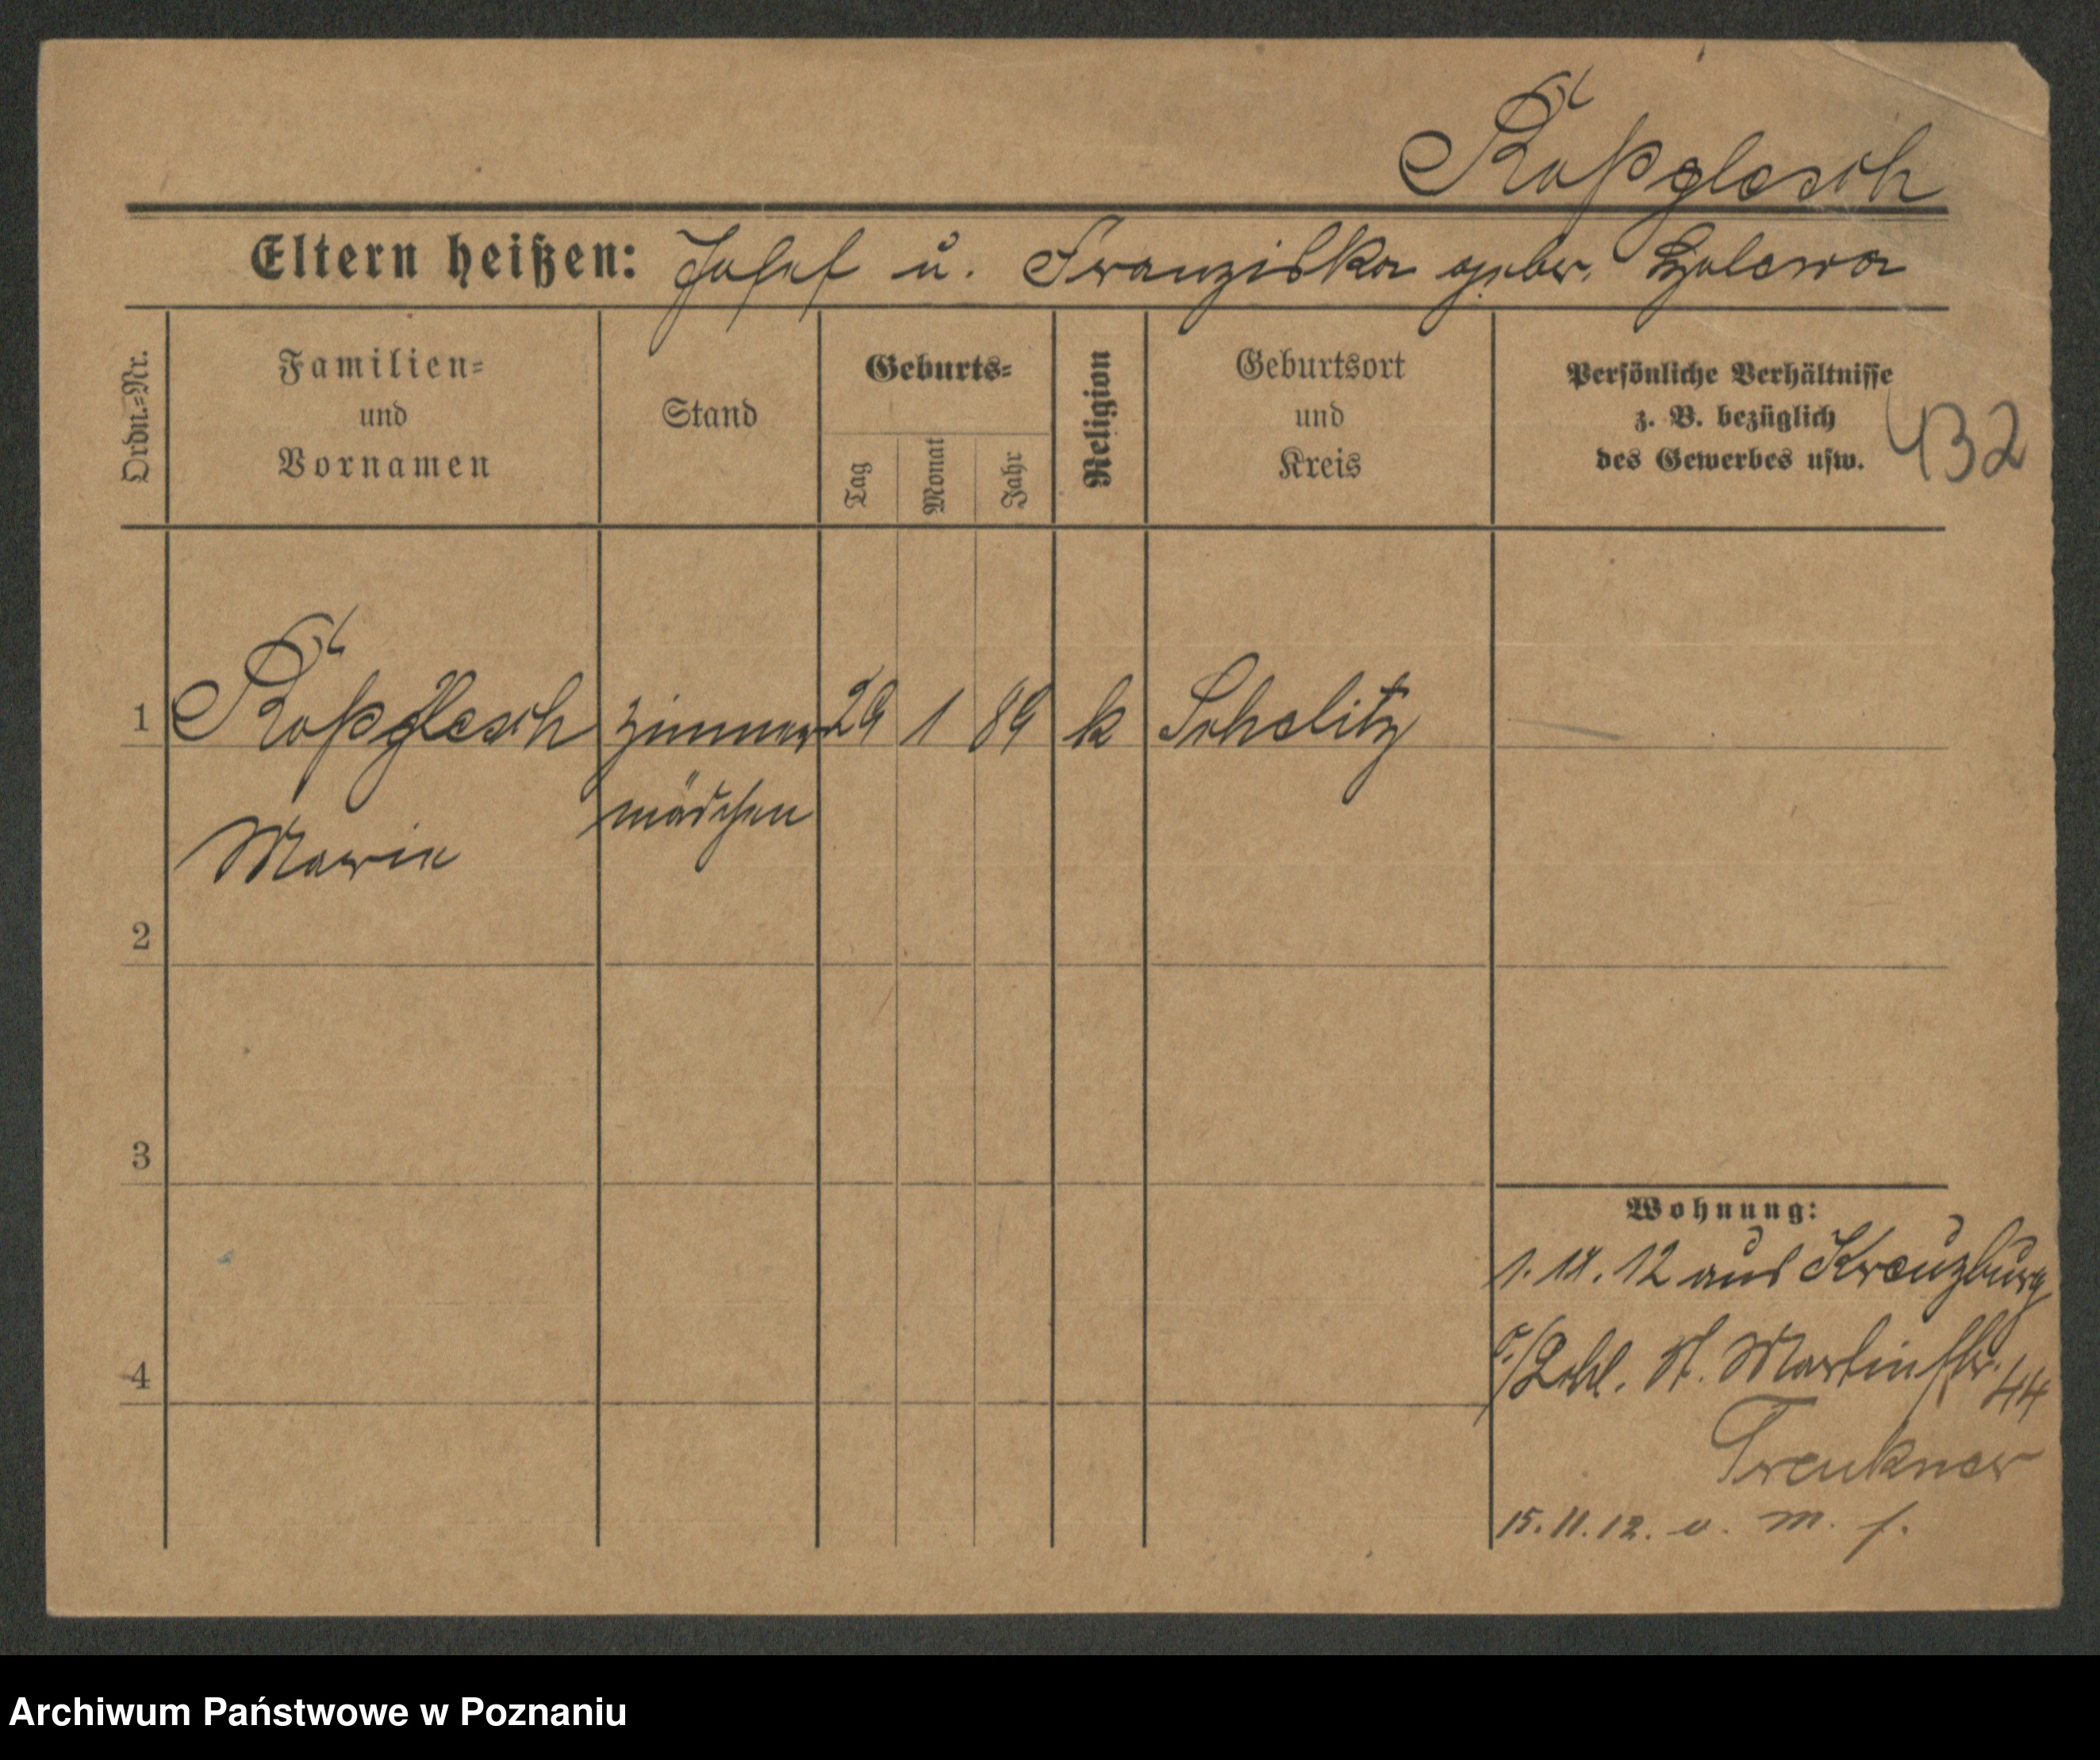 Koßglesch
Eltern heißen: Josef u. Franziska geber.
Ordn.-Nr.
Familien-
und
Vornamen
Stand
Geburts-
Tag
Monat
Jahr
Religion
Geburtsort
und
Kreis
Persönliche Verhältnisse
z. B. bezüglich
des Gewerbes usw.
432
1 Koßglesch Zimmer 29 1 89 k Schelitz
mädchen
Marie
2
3
4
Wohnung:
1. 11. 12 aus Kreuzburg
St. Martinstr. 44
Trenkner
15. 11. 12. v. m. f.
Archiwum Państwowe w Poznaniu